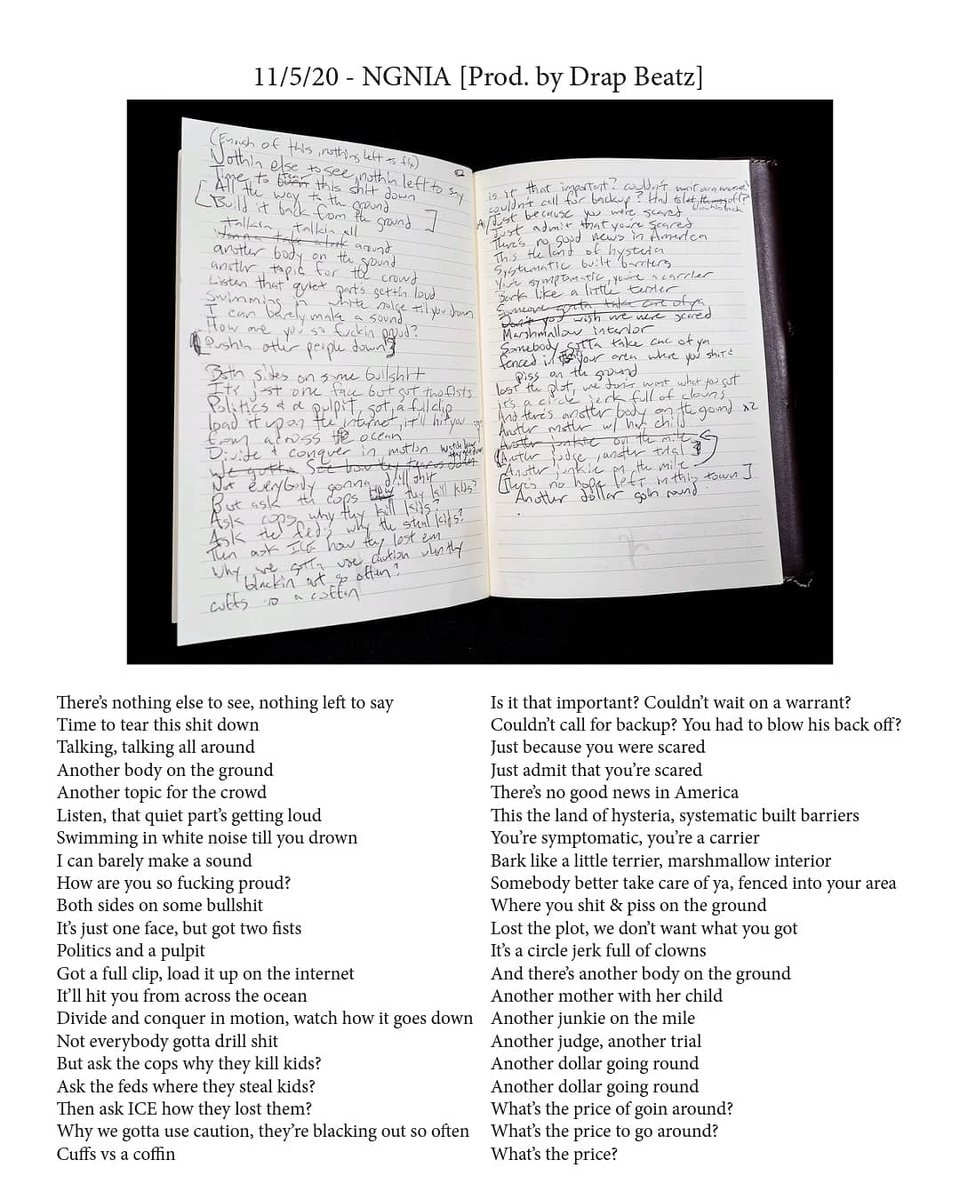 11/5/20 - NGNIA [Prod. by Drap Beatz]
(Enough of this, nothing left to flip)
Nothin else to see, nothin left to say
Time to tear this shit down
All the way to the ground
Build it back from the ground
Talkin, talkin all
around
another body on the ground
another topic for the crowd
Listen that quiet parts gettin loud
Swimming in white noise til you down
I can barely make a sound
How are you so fuckin proud?
[Pushin other people down]
Both sides on some bullshit
It's just one face but got two fists
Politics & a pulpit, got a full clip
load it up on the internet, it'll hit you
from across the ocean
Divide & conquer in motion watch how
Not everybody gonna drill shit
But ask the cops how they kill kids?
Ask cops why they kill kids?
Ask the feds why the steal kids?
Then ask ICE how they lost em
Why we gotta use caution when they
blackin out so often?
cuffs to a coffin
is it that important? Couldn't wait on a warrant?
couldn't call for backup? Had to
Just because you were scared
Just admit that you're scared
There's no good news in America
This the land of hysteria
Systematic built barriers
You're symptomatic, you're a carrier
Bark like a little terrier
Someone gotta take care of ya
Don't you wish we were scared
Marshmallow interior
Somebody gotta take care of ya
fenced in your area where you shit &
piss on the ground
lost the plot, we don't want what you got
it's a circle jerk full of clowns
And there's another body on the ground x2
Another mother w/ her child
Another junkie on the mile
(Another judge, another trial
Another junkie on the mile
[There's no hope left in this town]
Another dollar goin round
There's nothing else to see, nothing left to say
Time to tear this shit down
Talking, talking all around
Another body on the ground
Another topic for the crowd
Listen, that quiet part's getting loud
Swimming in white noise till you drown
I can barely make a sound
How are you so fucking proud?
Both sides on some bullshit
It's just one face, but got two fists
Politics and a pulpit
Got a full clip, load it up on the internet
It'll hit you from across the ocean
Divide and conquer in motion, watch how it goes down
Not everybody gotta drill shit
But ask the cops why they kill kids?
Ask the feds where they steal kids?
Then ask ICE how they lost them?
Why we gotta use caution, they're blacking out so often
Cuffs vs a coffin
Is it that important? Couldn't wait on a warrant?
Couldn't call for backup? You had to blow his back off?
Just because you were scared
Just admit that you're scared
There's no good news in America
This the land of hysteria, systematic built barriers
You're symptomatic, you're a carrier
Bark like a little terrier, marshmallow interior
Somebody better take care of ya, fenced into your area
Where you shit & piss on the ground
Lost the plot, we don't want what you got
It's a circle jerk full of clowns
And there's another body on the ground
Another mother with her child
Another junkie on the mile
Another judge, another trial
Another dollar going round
Another dollar going round
What's the price of goin around?
What's the price to go around?
What's the price?